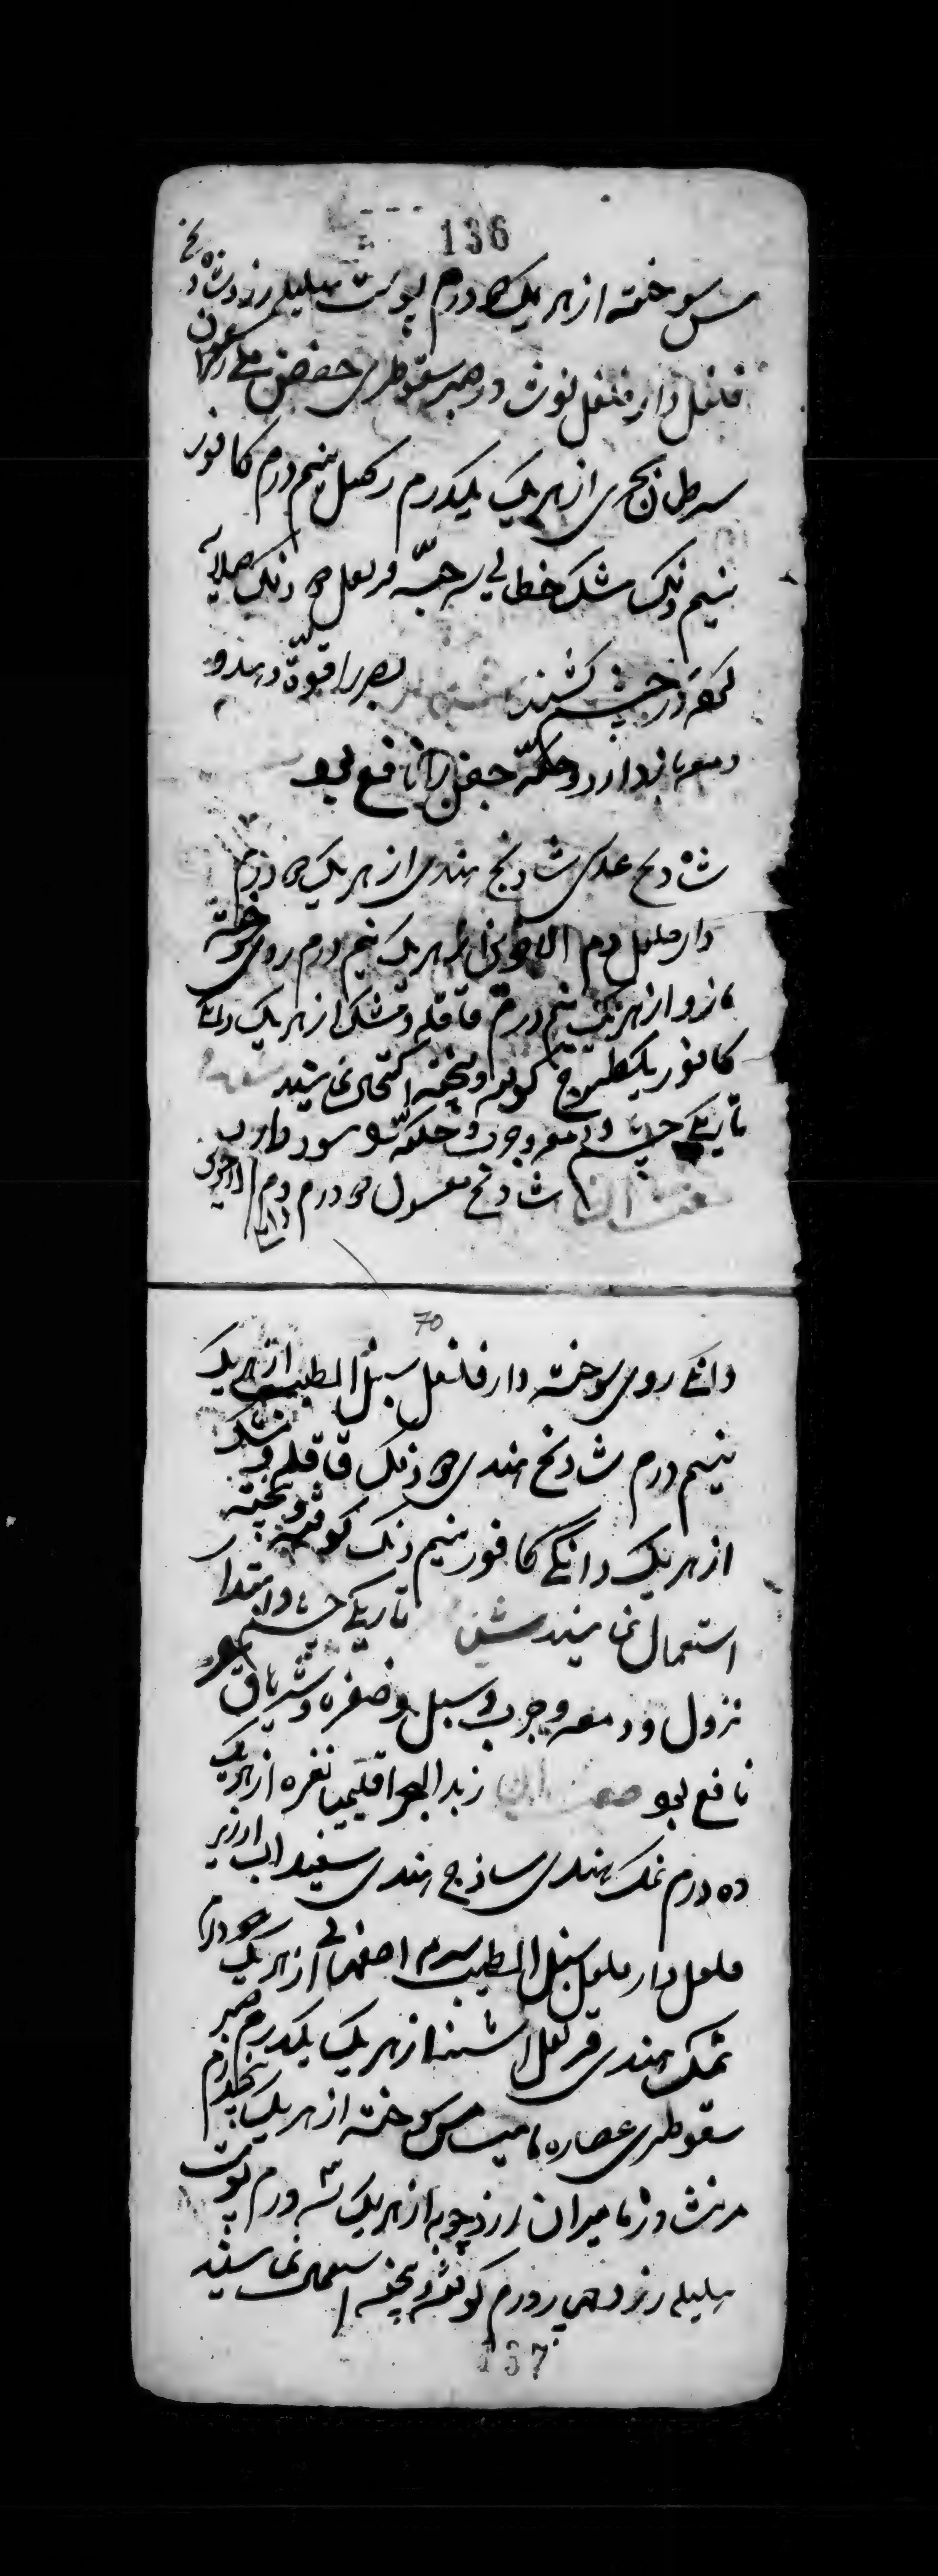 136
مس سوخته از هر یک ۵ درم پوست هلیله زرد شادنج
فلفل دارفلفل نوشادر صبر سقوطری حضض مکی زعفران
سرطان بحری از هر یک یکدرم نیم درم کافور
نیم دنک مشک خطایی حبه قرنفل دنک صلایه
کرده در چشم کشند بصر را قوة دهد و
دمعه باز دارد و حکه جفن را نافع بود
شادنج عدسی شادنج هندی از هر یک درم
دارفلفل دم الاخوین از هر یک نیم درم روی سوخته
مازو از هر یک نیم درم قاقله و مشک از هر یک دانکی
کافور یک طسوج کوفته و بیخته اکتحال نمایند
تاریکی چشم و دمعه و جرب و حکه سود دارد
شادنج مغسول درم دم الاخوین
70
دانکی روی سوخته دارفلفل سنبل الطیب از هر یک
نیم درم شادنج هندی دنک قاقله و مشک
از هر یک دانکی کافور نیم دنک کوفته و بیخته
استعمال نمایند تاریکی چشم و ابتدا
نزول و دمعه و جرب و سبل و ظفره و
نافع بود صفت زبد البحر اقلیمیا نقره از هر یک
ده درم نمک هندی ساذج هندی سفیداب ارزیز
فلفل دارفلفل سنبل الطیب سرمه اصفهانی از هر یک درم
نمک هندی قرنفل اشنه از هر یک یکدرم صبر
سقوطری عصاره مامیثا مس سوخته از هر یک پنجدرم
مامیران زردچوبه از هر یک سه درم پوست
هلیله زرد درم کوفته و بیخته استعمال نمایند
137